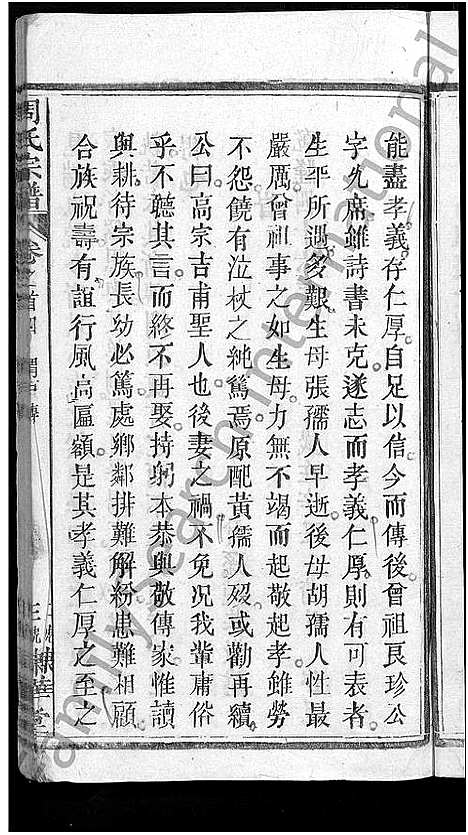 能盡孝義存仁厚自足以信今而傳後曾祖長珍公
字九席雖詩書未克遂志而孝義仁厚則有可表者
生平所遇多艱生母張孺人早逝後母胡孺人性最
嚴厲曾祖事之如生母力無不竭而起敬起孝雖勞
不怨饒有泣杖之純篤焉原配黃孺人歿或勸再續
公曰高宗吉甫聖人也後妻之禍不免况我輩庸俗
乎不聽其言而終不再娶持躬本恭與敬傳家惟讀
與耕待宗族長幼必篤處鄉鄰排難解紛患難相顧
合族祝壽有誼行風高匾額是其孝義仁厚之至之
周氏宗譜
卷之首四
family search international